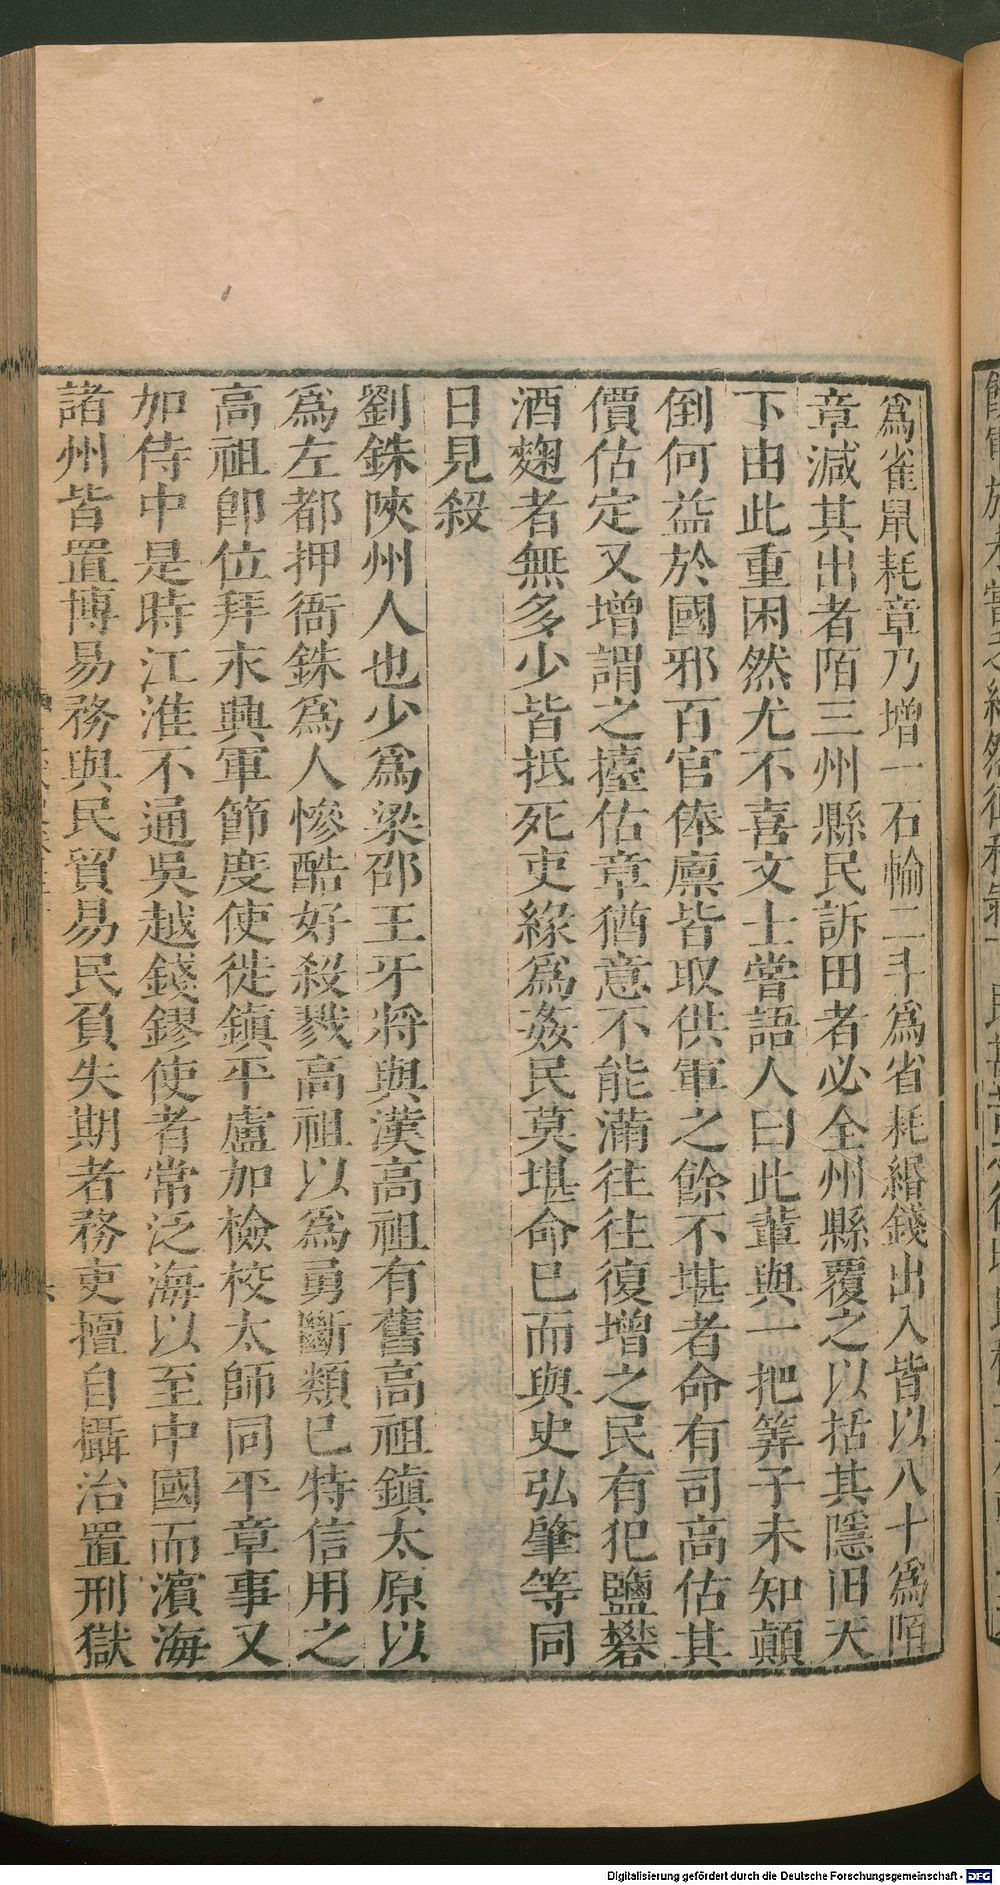 爲雀鼠耗章乃增一石輸二斗爲省耗緡錢出入皆以八十爲陌
章減其出者陌三州縣民訴田者必全州縣覆之以括其隱田天
下由此重困然尤不喜文士嘗語人曰此輩與一把筭子未知顛
倒何益於國邪百官俸廩皆取供軍之餘不堪者命有司高估其
價估定又增謂之擡估章猶意不能滿往往復增之民有犯鹽礬
酒麴者無多少皆抵死吏緣爲姦民莫堪命已而與史弘肇等同
日見殺
劉銖陝州人也少爲梁邵王牙將與漢高祖有舊高祖鎮太原以
爲左都押衙銖爲人慘酷好殺戮高祖以爲勇斷類已特信用之
高祖卽位拜永興軍節度使徙鎮平盧加檢校太師同平章事又
加侍中是時江淮不通吳越錢鏐使者常泛海以至中國而濱海
諸州皆置博易務與民貿易民負失期者務吏擅自攝治置刑獄
Digitalisierung gefördert durch die Deutsche Forschungsgemeinschaft - DFG